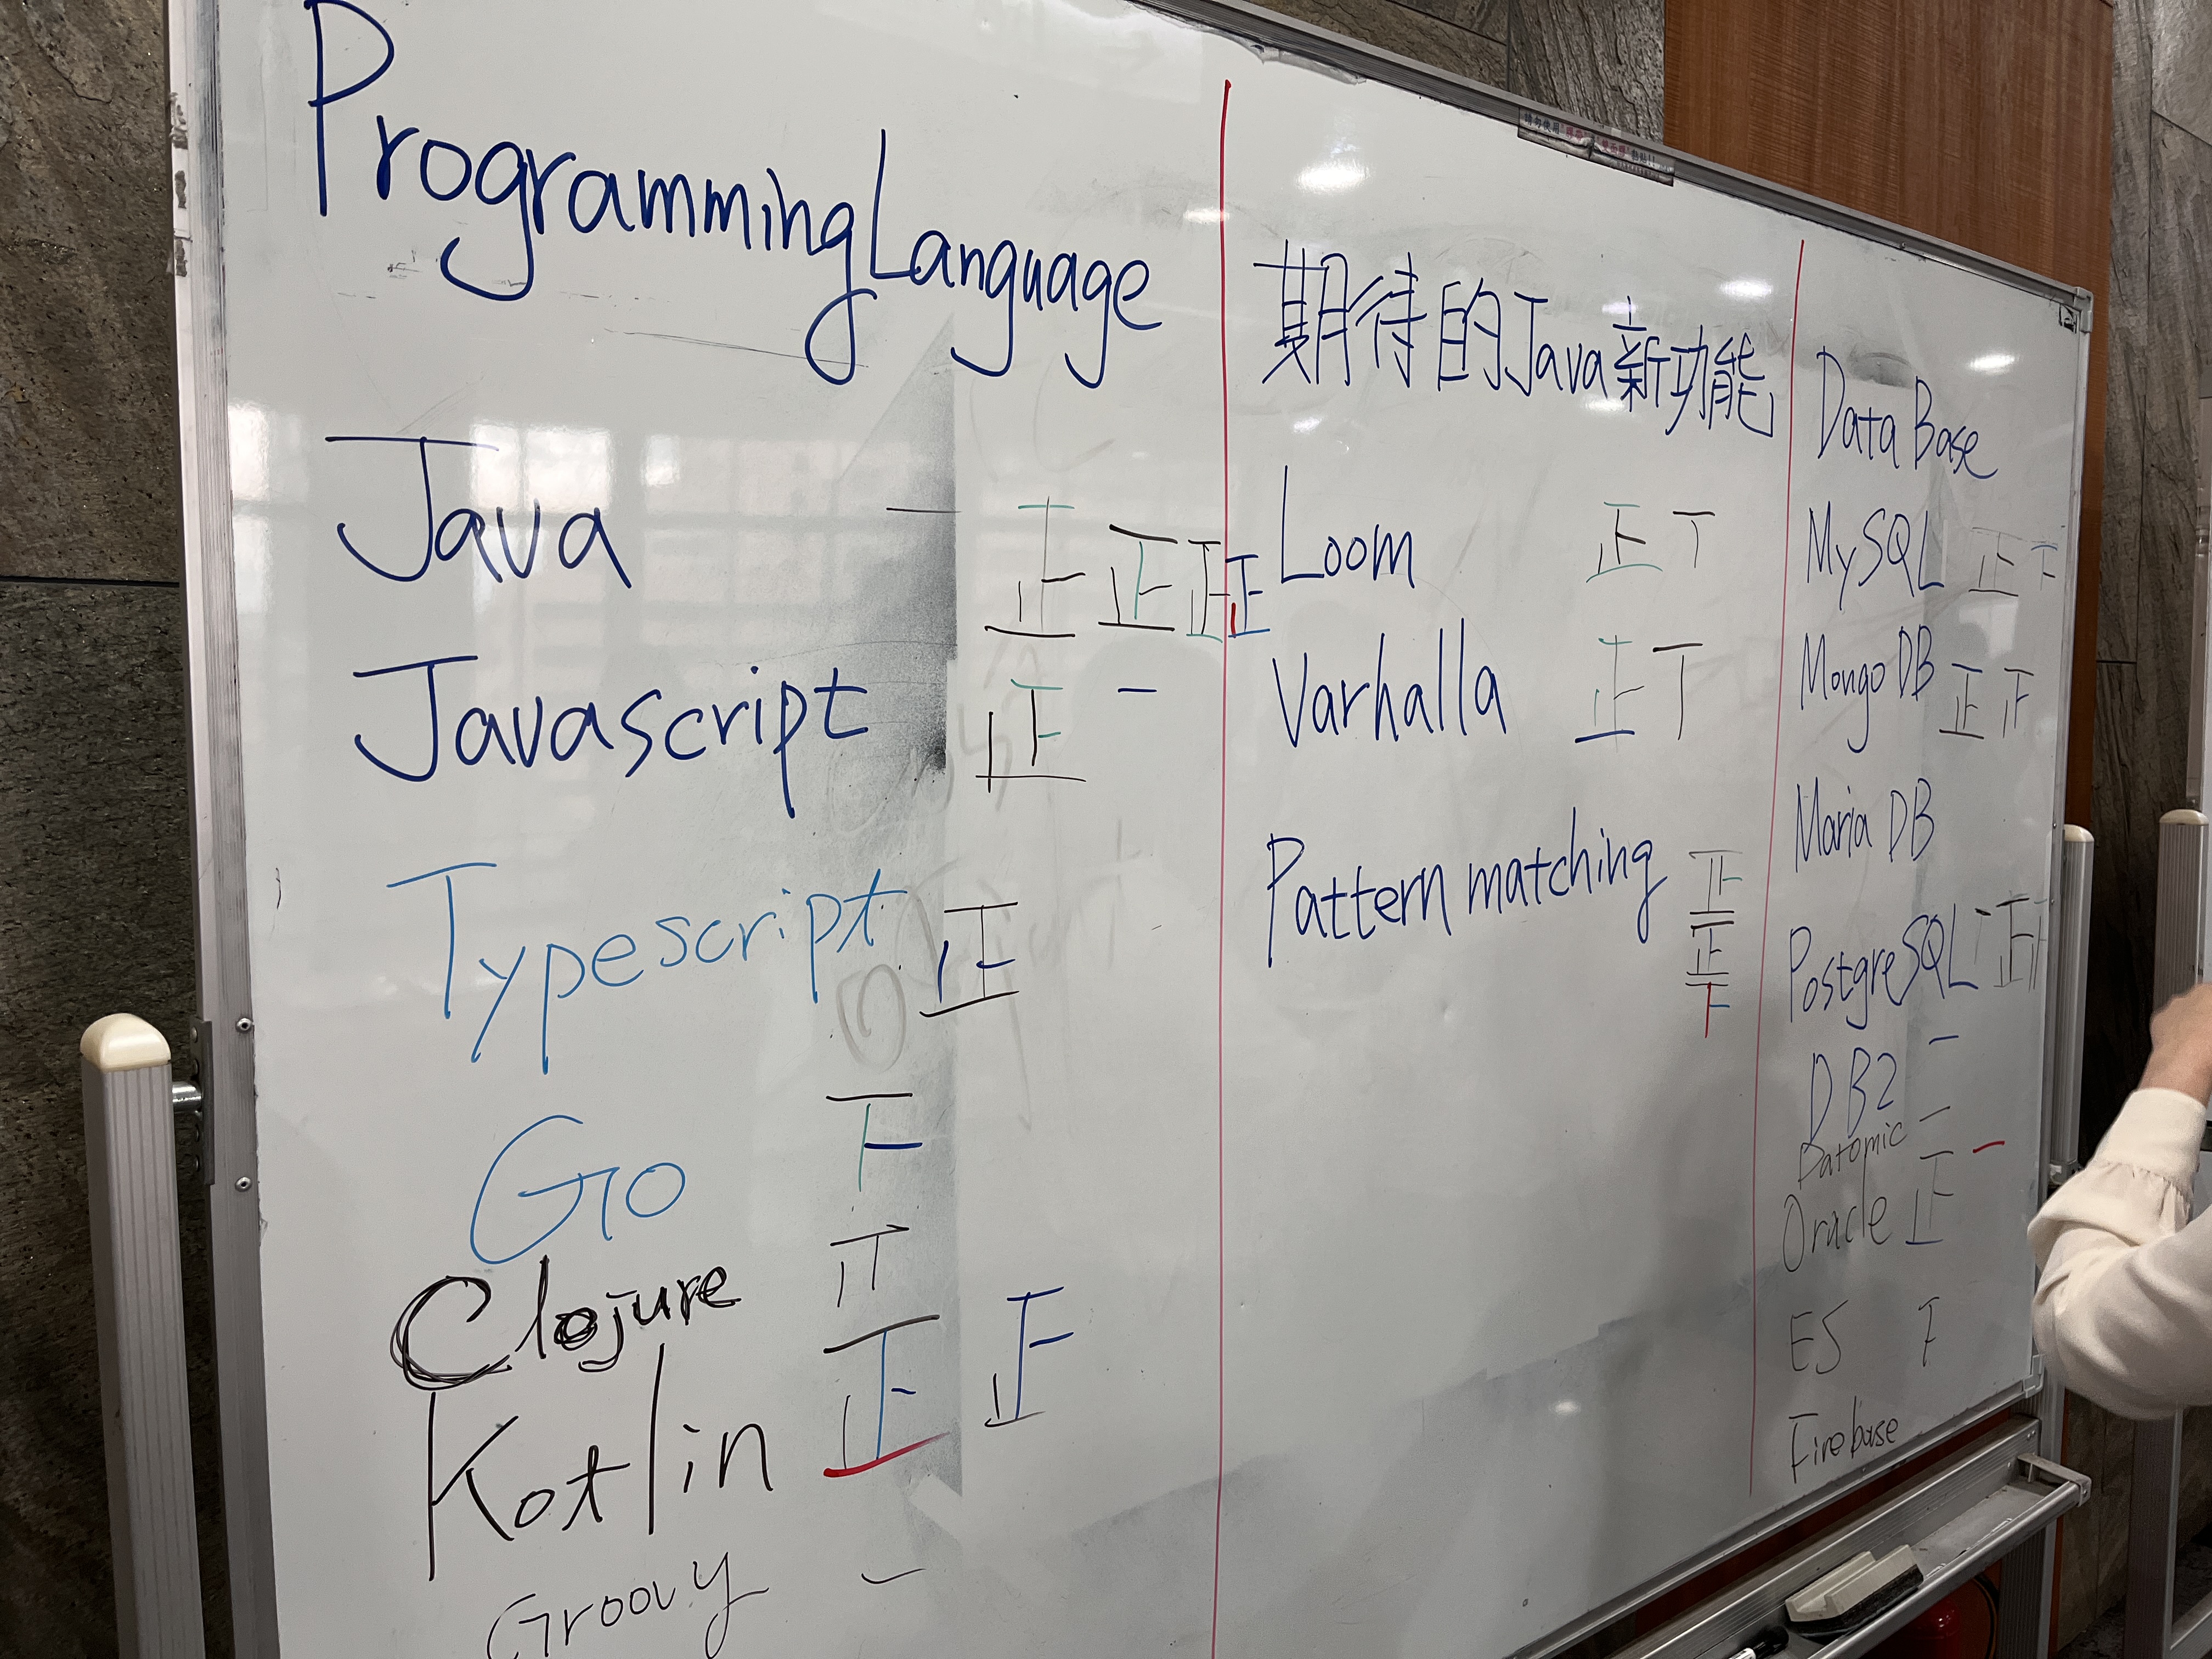 Programming Language
Java 一 正 正 正 正
Javascript 正 一
Typescript 正
Go 下
Clojure
Kotlin 正 正
Groovy 一
期待的Java新功能
Loom 正 丅
Varhalla 正 丅
Pattern matching 正
正
下
Data Base
MySQL 正 下
Mongo DB 正
Maria DB
PostgreSQL 一 正
DB2 一
Datomic 一
Oracle 正 一
ES 下
Firebase